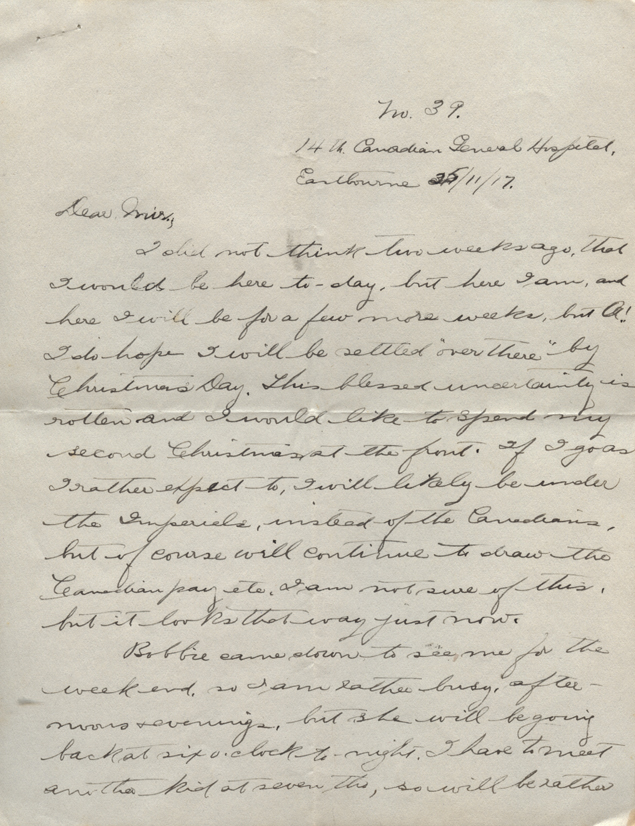 No. 39.
14th. Canadian General Hospital,
Eastbourne 25/11/17.
Dear Miss,
I did not think two weeks ago, that
I would be here to-day, but here I am, and
here I will be for a few more weeks, but O!
I do hope I will be settled "over there" by
Christmas Day. This blessed uncertainty is
rotten and I would like to spend my
second Christmas at the front. If I go as
I rather expect to, I will likely be under
the Imperials, instead of the Canadians,
but of course will continue to draw the
Canadian pay etc. I am not sure of this,
but it looks that way just now.
Bobbie came down to see me for the
week end, so I am rather busy, after-
noons & evenings, but she will be going
back at six o'clock to-night. I have to meet
another kid at seven tho, so will be rather